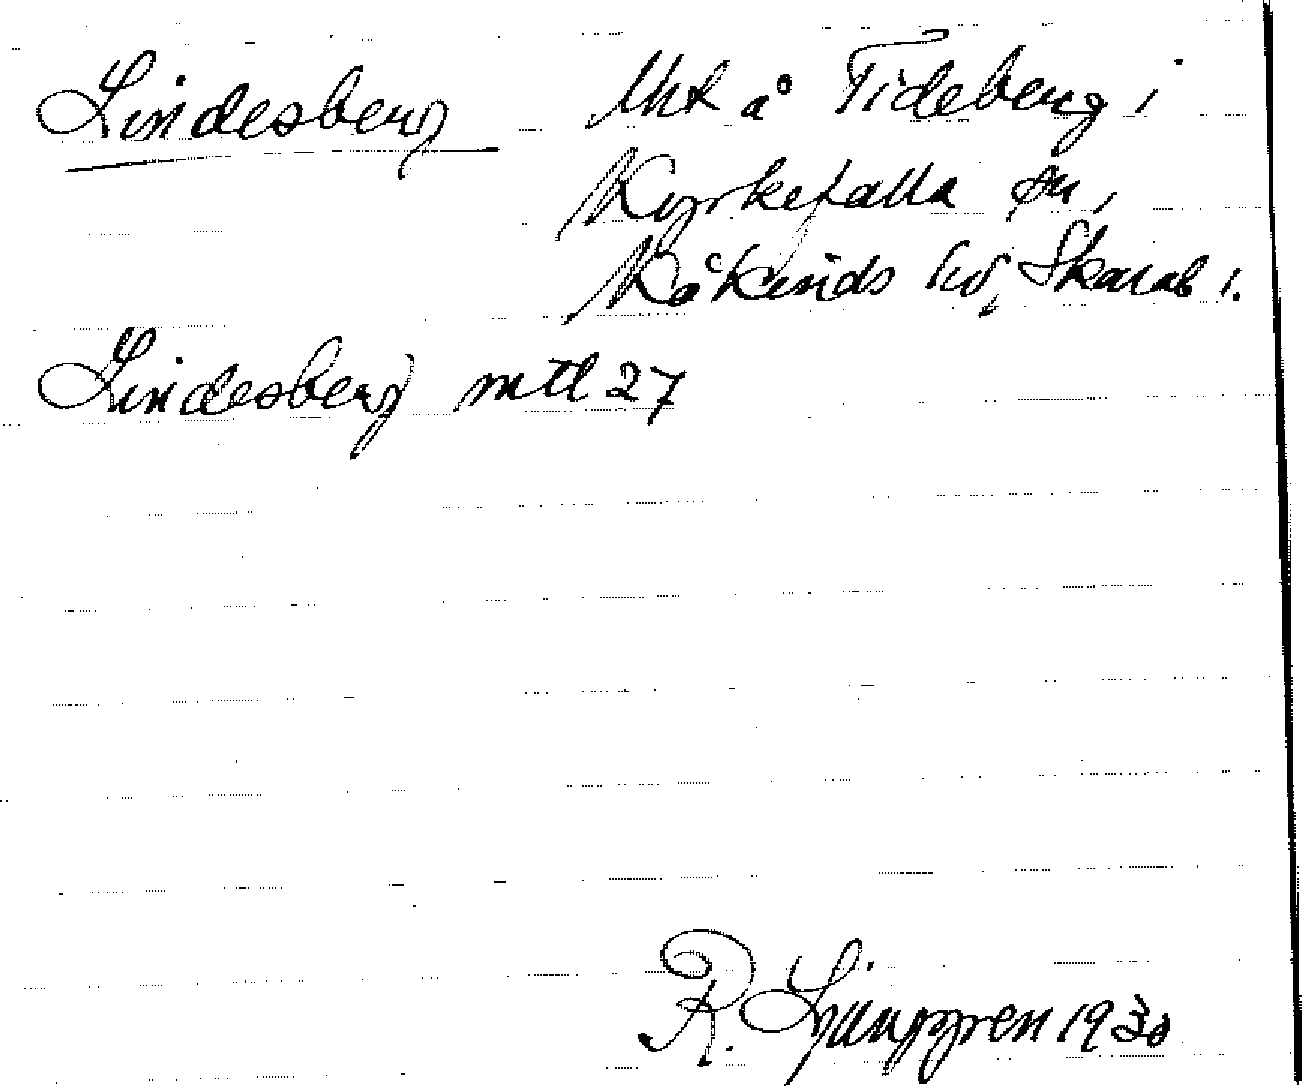 Lindesberg Uht å Tideberg i
Kyrkefalla sn,
Kåkinds hd, Skarab l.
Lindesberg mtl 27
R. Ljunggren 1930